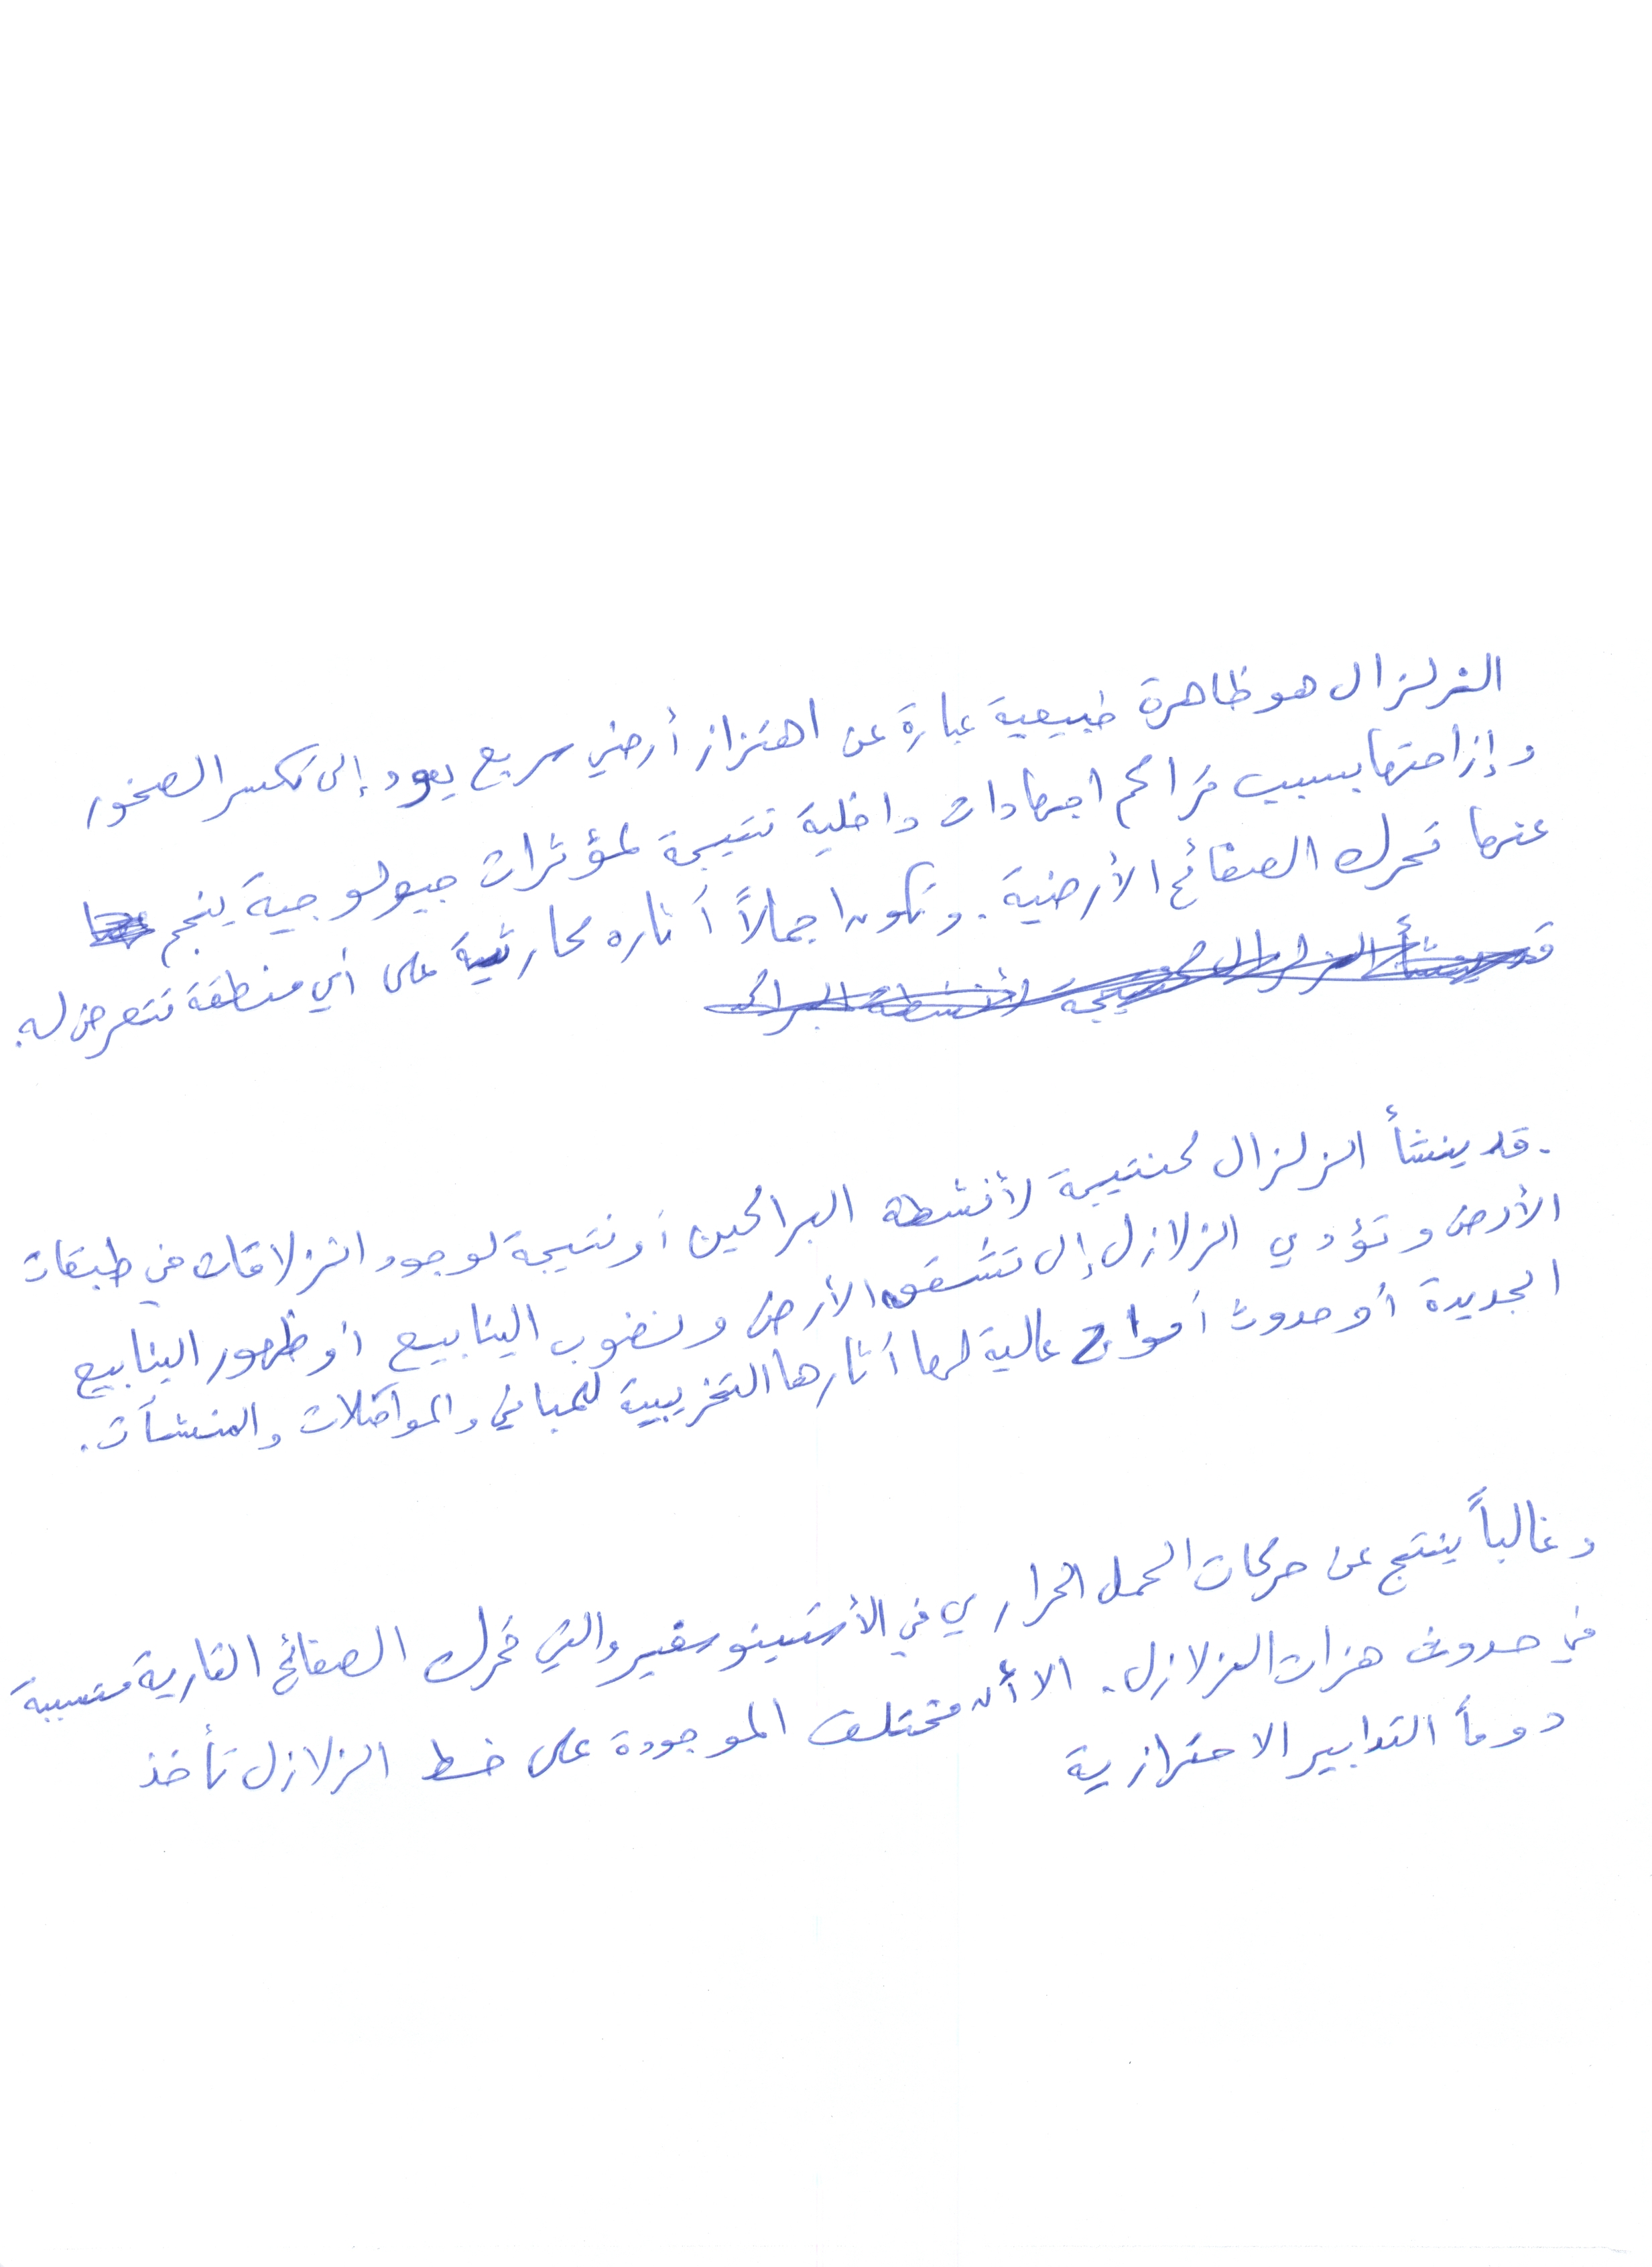 الزلزال هو ظاهرة طبيعية عبارة عن اهتزاز أرضي سريع يعود إلى تكسر الصخور
وإزاحتها بسبب تراكم اجهادات داخلية نتيجة لمؤثرات جيولوجية ينجم
عنها تحرك الصفائح الأرضية. وتكون اجمالاً أثاره كارثية على أي منطقة تتعرض له.
قد ينشأ الزلزال كنتيجة لأنشطة البراك
.قد ينشأ الزلزال كنتيجة لأنشطة البراكين أو نتيجة لوجود انزلاقات في طبقات
الأرض وتؤدي الزلازل إلى تشقق الأرض ونضوب الينابيع أو ظهور الينابيع
الجديدة أو حدوث أمواج عالية لها أثارها التخريبية للمباني والمواصلات والمنشآت.
وغالباً ينتج عن حركات الحمل الحراري في الأستينوسفير والتي تحرك الصفائح القارية متسببة
في حدوث هزات الزلازل. الا أن مختلف الموجودة على خط الزلازل تأخذ
دوماً التدابير الاحترازية